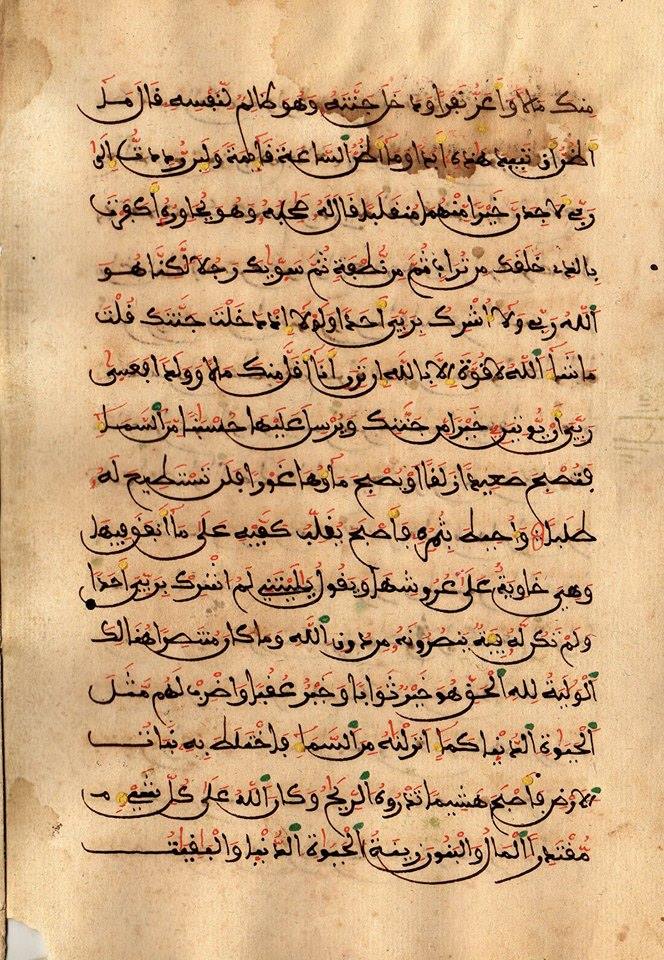 منك مالا وأعز نفرا ودخل جنته وهو ظالم لنفسه قال ما
أظن أن تبيد هذه أبدا وما أظن الساعة قائمة ولئن رددت إلى
ربي لأجدن خيرا منهما منقلبا قال له صحبه وهو يحاوره أكفرت
بالذي خلقك من تراب ثم من نطفة ثم سويك رجلا لكنا هو
الله ربي ولا أشرك بربي أحدا ولولا إذ دخلت جنتك قلت
ما شاء الله لا قوة إلا بالله إن ترن أنا أقل منك مالا وولدا فعسى
ربي أن يوتين خيرا من جنتك ويرسل عليها حسبنا من السماء
فتصبح صعيدا زلقا أو يصبح ماؤها غورا فلن تستطيع له
طلبا وأحيط بثمره فأصبح يقلب كفيه على ما أنفق فيها
وهي خاوية على عروشها ويقول يليتني لم أشرك بربي أحدا
ولم تكن له فئة ينصرونه من دون الله وما كان منتصرا هنالك
الولية لله الحق هو خير ثوابا وخير عقبا واضرب لهم مثل
الحيوة الدنيا كما أنزلنه من السماء فاختلط به نبات
الأرض فأصبح هشيما تذروه الريح وكان الله على كل شيء
مقتدرا المال والبنون زينة الحيوة الدنيا والبقيت